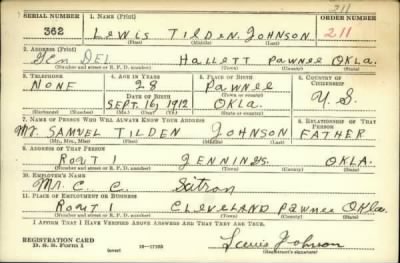 211
SERIAL NUMBER 1. NAME (Print) ORDER NUMBER
362 LEWIS TILDEN JOHNSON 211
(First) (Middle) (Last)
2. ADDRESS (Print)
GEN DEL HALLETT PAWNEE OKLA.
(Number and street or R. F. D. number) (Town) (County) (State)
3. TELEPHONE 4. AGE IN YEARS 5. PLACE OF BIRTH 6. COUNTRY OF CITIZENSHIP
NONE 28 PAWNEE
DATE OF BIRTH (Town or county) U.S.
SEPT. 16, 1912 OKLA.
(Exchange) (Number) (Mo.) (Day) (Yr.) (State or country)
7. NAME OF PERSON WHO WILL ALWAYS KNOW YOUR ADDRESS 8. RELATIONSHIP OF THAT PERSON
MR. SAMUEL TILDEN JOHNSON FATHER
(Mr., Mrs., Miss) (First) (Middle) (Last)
9. ADDRESS OF THAT PERSON
ROUT 1 JENNINGS. OKLA.
(Number and street or R. F. D. number) (Town) (County) (State)
10. EMPLOYER'S NAME
MR. C. C.
11. PLACE OF EMPLOYMENT OR BUSINESS
ROUT 1 CLEVELAND PAWNEE OKLA.
(Number and street or R. F. D. number) (Town) (County) (State)
I AFFIRM THAT I HAVE VERIFIED ABOVE ANSWERS AND THAT THEY ARE TRUE.
REGISTRATION CARD
D. S. S. FORM 1 (over) 16-17105 Lewis Johnson
(Registrant's signature)